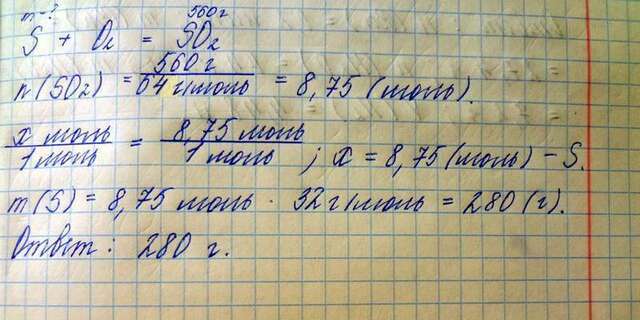 m-?
560 г
S + O₂ = SO₂
n(SO₂) = 560 г / 64 г/моль = 8,75 (моль).
x моль / 1 моль = 8,75 моль / 1 моль ; x = 8,75 (моль) - S.
m(S) = 8,75 моль · 32 г/моль = 280 (г).
Ответ: 280 г.